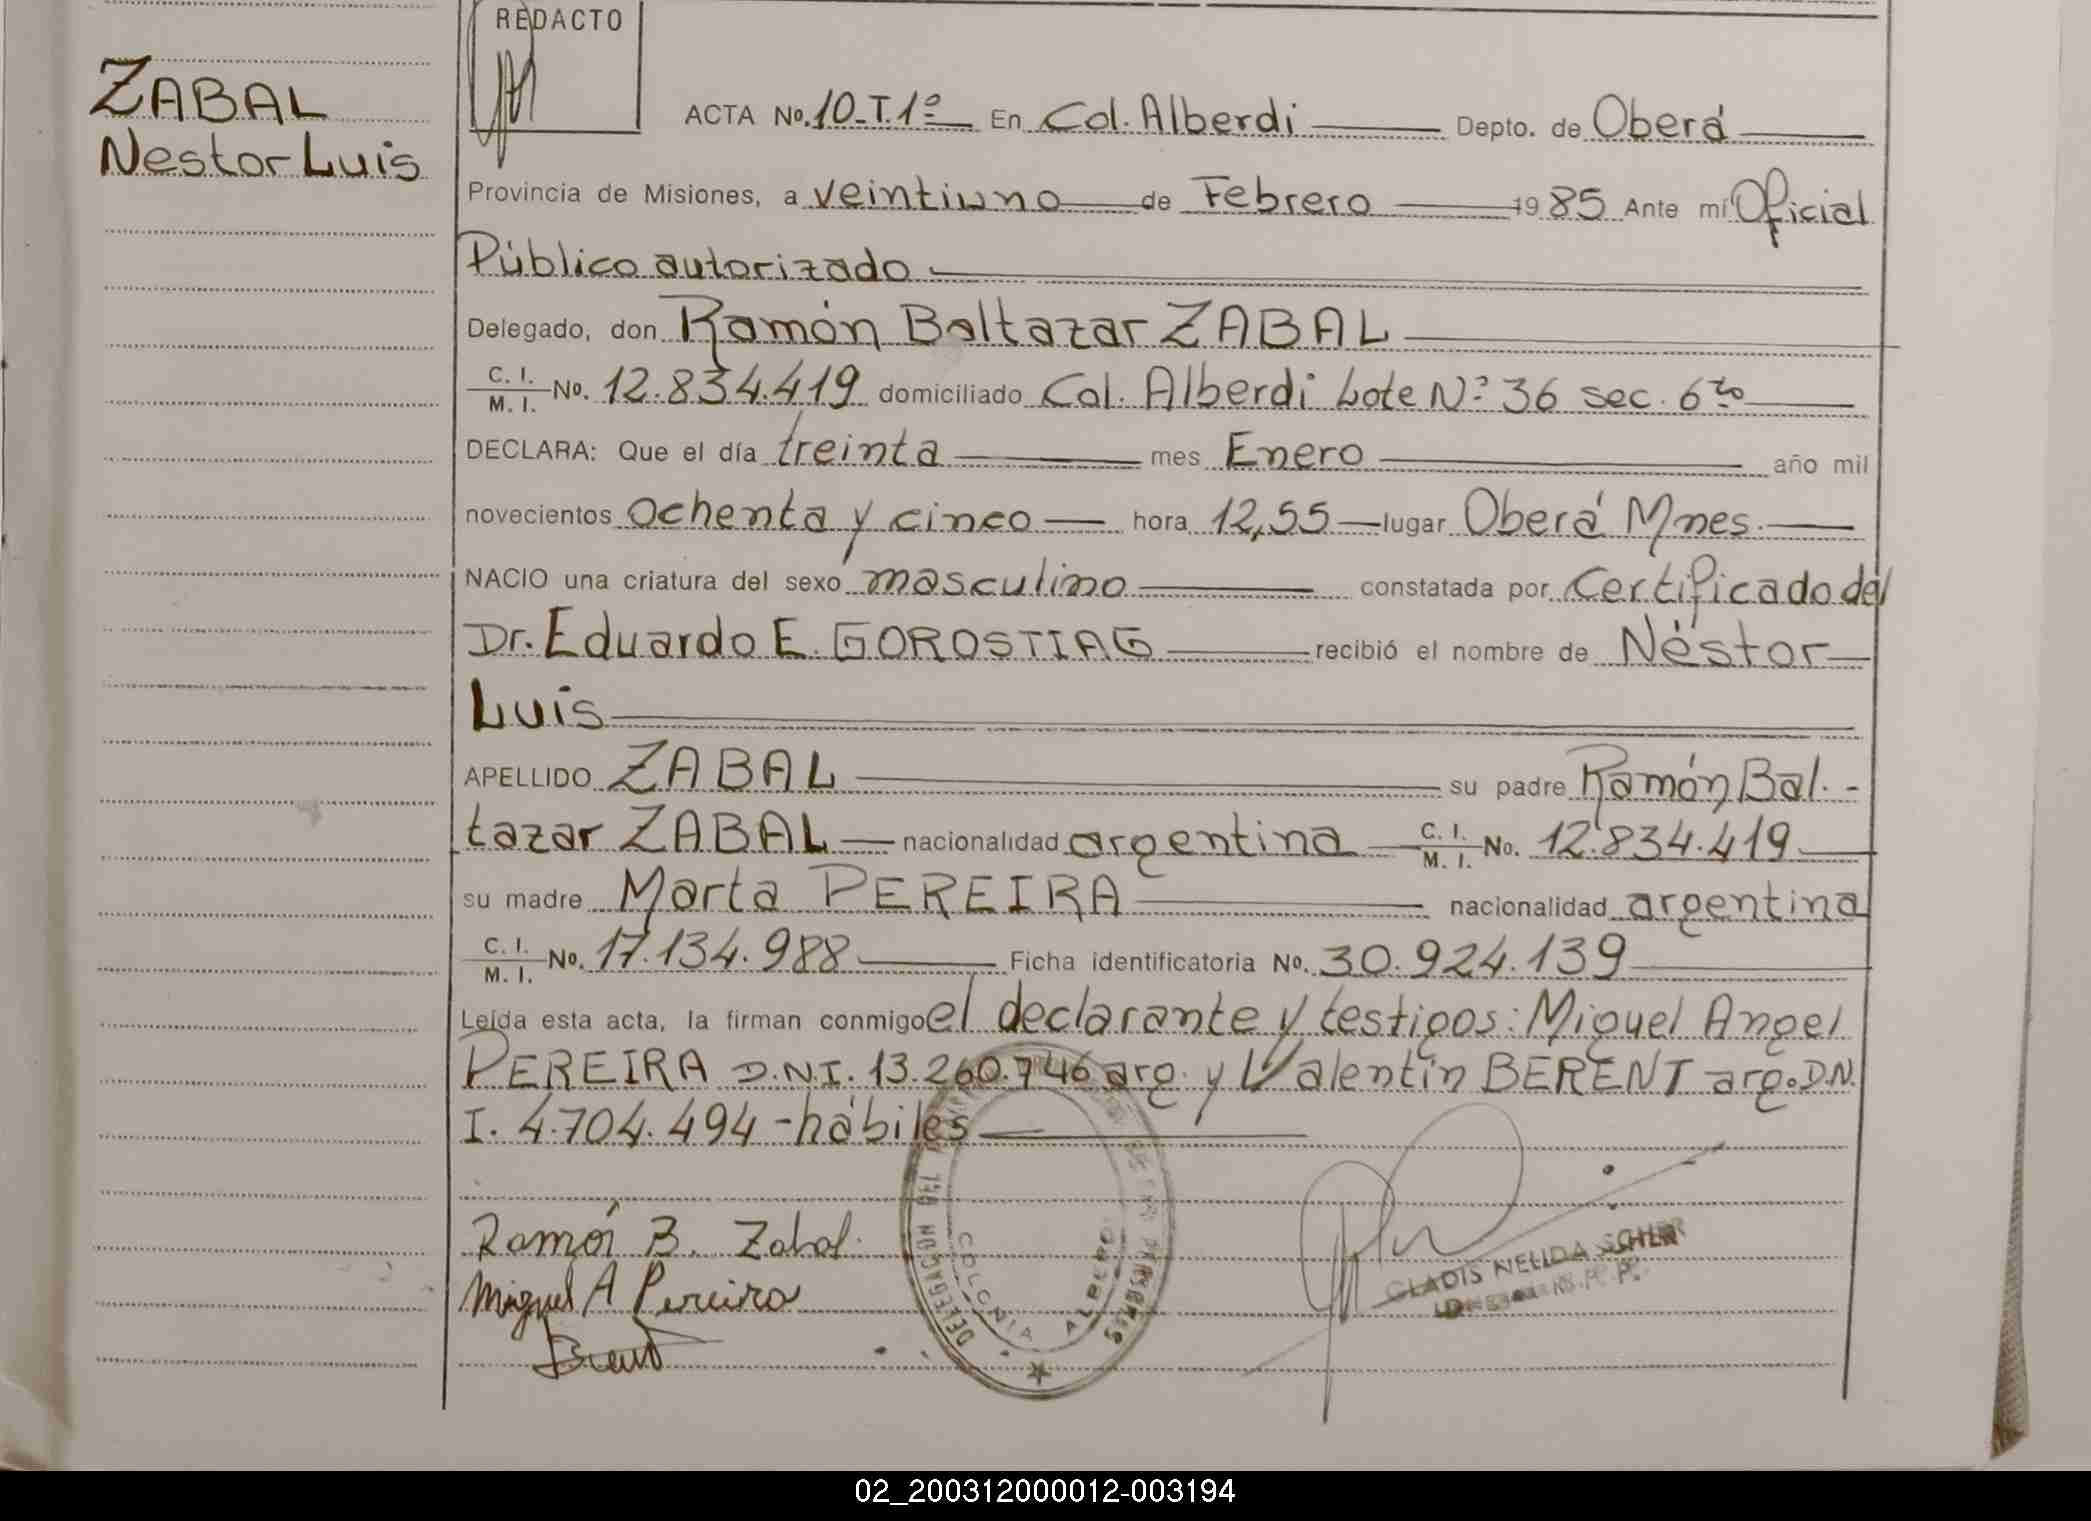 ZABAL
Nestor Luis
REDACTO
ACTA No. 10-T.1º En Col. Alberdi Depto. de Oberá
Provincia de Misiones, a veintiuno de Febrero 1985 Ante mí Oficial
Público autorizado
Delegado, don Ramón Baltazar ZABAL
C. I. / M. I. No. 12.834.419 domiciliado Col. Alberdi Lote Nº 36 sec. 6ta
DECLARA: Que el día treinta mes Enero año mil
novecientos ochenta y cinco hora 12,55 lugar Oberá Mnes.
NACIO una criatura del sexo masculino constatada por Certificado del
Dr. Eduardo E. GOROSTIAG recibió el nombre de Néstor
Luis
APELLIDO ZABAL su padre Ramón Bal-
tazar ZABAL nacionalidad argentina C. I. / M. I. No. 12.834.419
su madre Marta PEREIRA nacionalidad argentina
C. I. / M. I. No. 17.134.988 Ficha identificatoria No. 30.924.139
Leída esta acta, la firman conmigo el declarante y testigos: Miguel Angel
PEREIRA D.N.I. 13.260.746 arg. y Valentín BERENT arg. D.N.
I. 4.704.494 - hábiles
Ramón B. Zabal
Miguel A Pereira
Berent
DELEGACION DEL DE LAS PERSONAS
COLONIA ALBERDI
GLADIS NELIDA
02_200312000012-003194